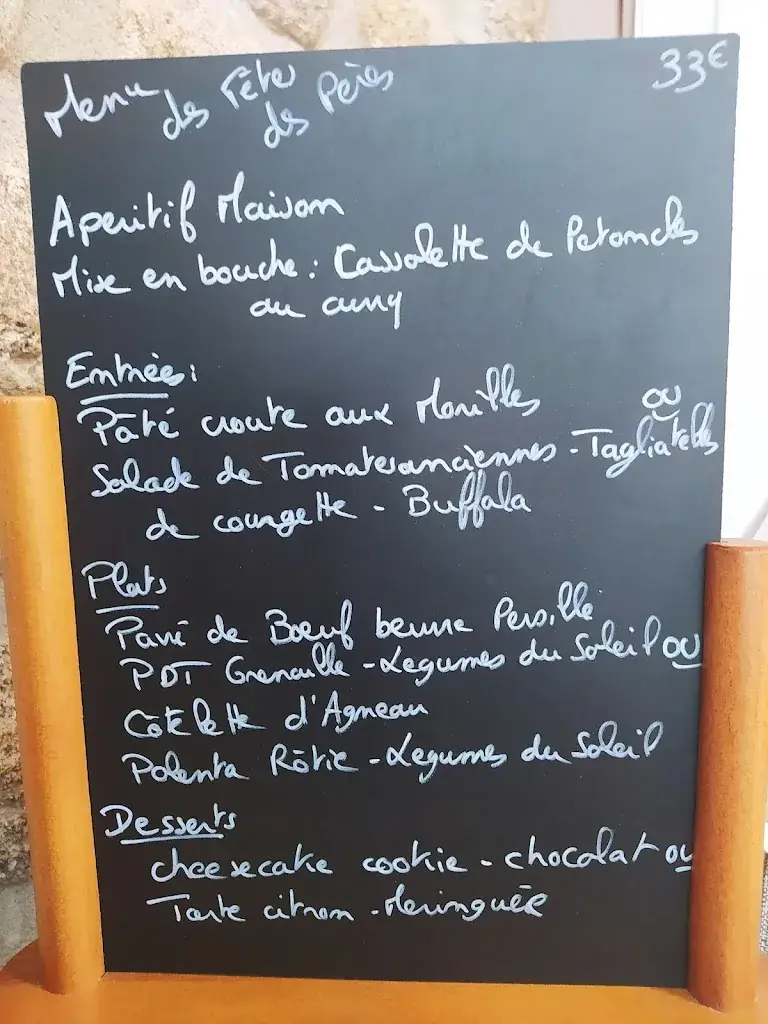 Menu des Fêtes des Pères 33€
Aperitif Maison
Mise en bouche : Cassolette de Petoncles
au curry
Entrées :
Pâté croute aux Morilles ou
Salade de Tomates anciennes - Tagliatelles
de courgette - Buffala
Plats
Pavé de Boeuf beurre Persillé
PDT Grenaille - Legumes du Soleil ou
Côtelette d'Agneau
Polenta Rôtie - Legumes du Soleil
Desserts
cheesecake cookie - chocolat ou
Tarte citron - Meringuée